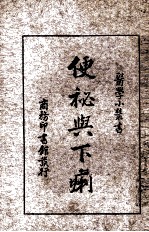 醫學小叢書
便秘與下痢
商務印書館發行